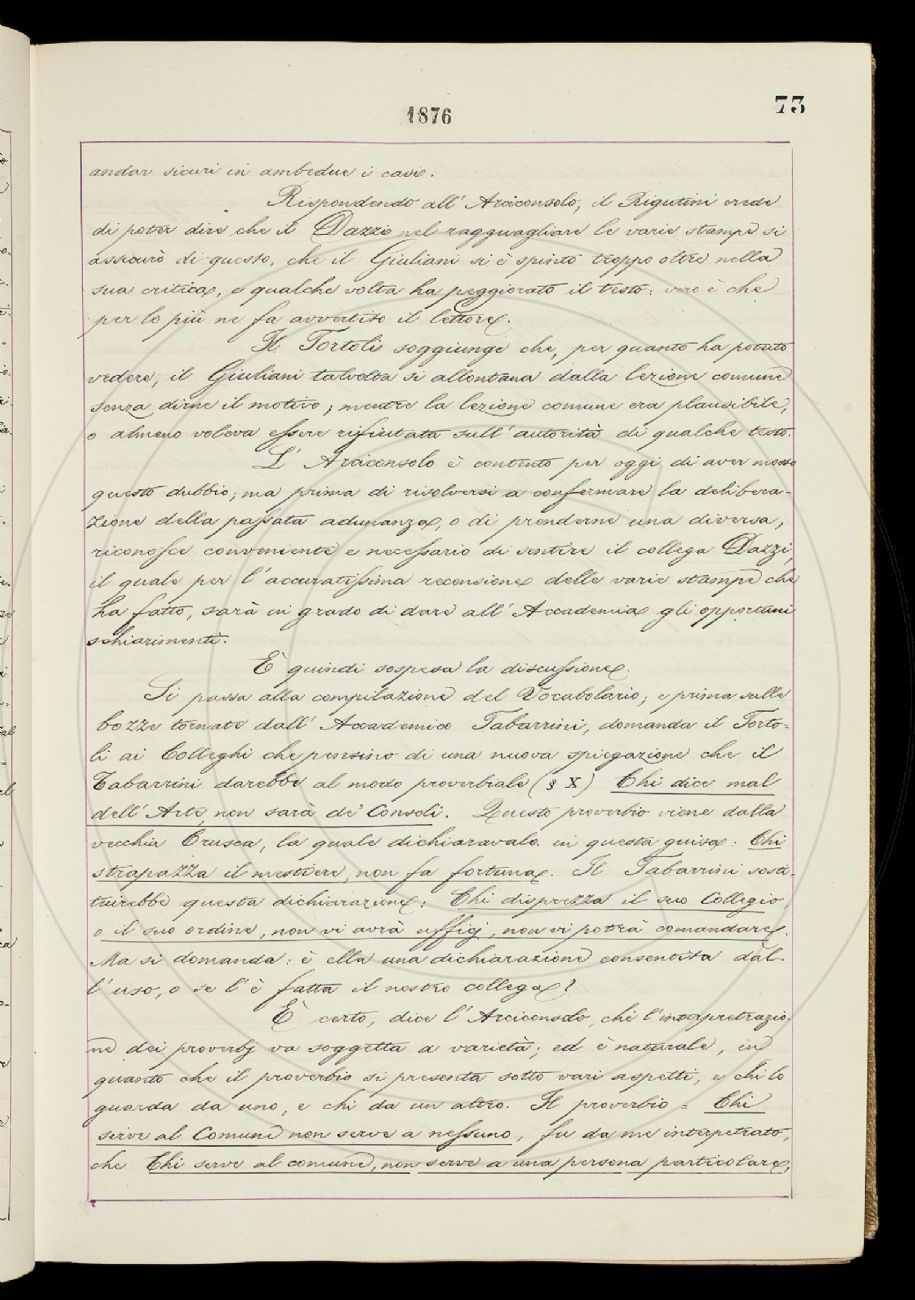 1876
73
andar sicuri in ambedue i casi.
Rispondendo all' Arciconsolo, il Rigutini crede
di poter dire che il Dazzi nel ragguagliare le varie stampe si
assicurò di questo, che il Giuliani si è spinto troppo oltre nella
sua critica, e qualche volta ha peggiorato il testo: vero è che
per lo più ne fa avvertito il lettore.
Il Tortoli soggiunge che, per quanto ha potuto
vedere, il Giuliani talvolta si allontana dalla lezione comune
senza dirne il motivo; mentre la lezione comune era plausibile,
o almeno voleva essere rifiutata sull' autorità di qualche testo.
L' Arciconsolo è contento per oggi di aver mosso
questo dubbio; ma prima di risolversi a confermare la delibera-
zione della passata adunanza, o di prenderne una diversa,
riconosce conveniente e necessario di sentire il collega Dazzi,
il quale per l' accuratissima recensione delle varie stampe che
ha fatto, sarà in grado di dare all' Accademia gli opportuni
schiarimenti.
È quindi sospesa la discussione.
Si passa alla compilazione del Vocabolario; e prima sulle
bozze tornate dall' Accademico Tabarrini, domanda il Torto-
li ai Colleghi che pensino di una nuova spiegazione che il
Tabarrini darebbe al modo proverbiale (§ X) Chi dice mal
dell' Arte, non sarà de' Consoli. Questo proverbio viene dalla
vecchia Crusca, la quale dichiaravalo in questa guisa: Chi
strapazza il mestiere, non fa fortuna. Il Tabarrini sosti-
tuirebbe questa dichiarazione: Chi disprezza il suo Collegio,
o il suo ordine, non vi avrà uffici, non vi potrà comandare.
Ma si domanda: è ella una dichiarazione consentita dal-
l' uso, o se l' è fatta il nostro collega?
È certo, dice l' Arciconsolo, che l' interpretrazio-
ne dei proverbj va soggetta a varietà; ed è naturale, in
quanto che il proverbio si presenta sotto vari aspetti, e chi lo
guarda da uno, e chi da un altro. Il proverbio = Chi
serve al Comune non serve a nessuno, fu da me interpetrato,
che Chi serve al comune, non serve a una persona particolare,